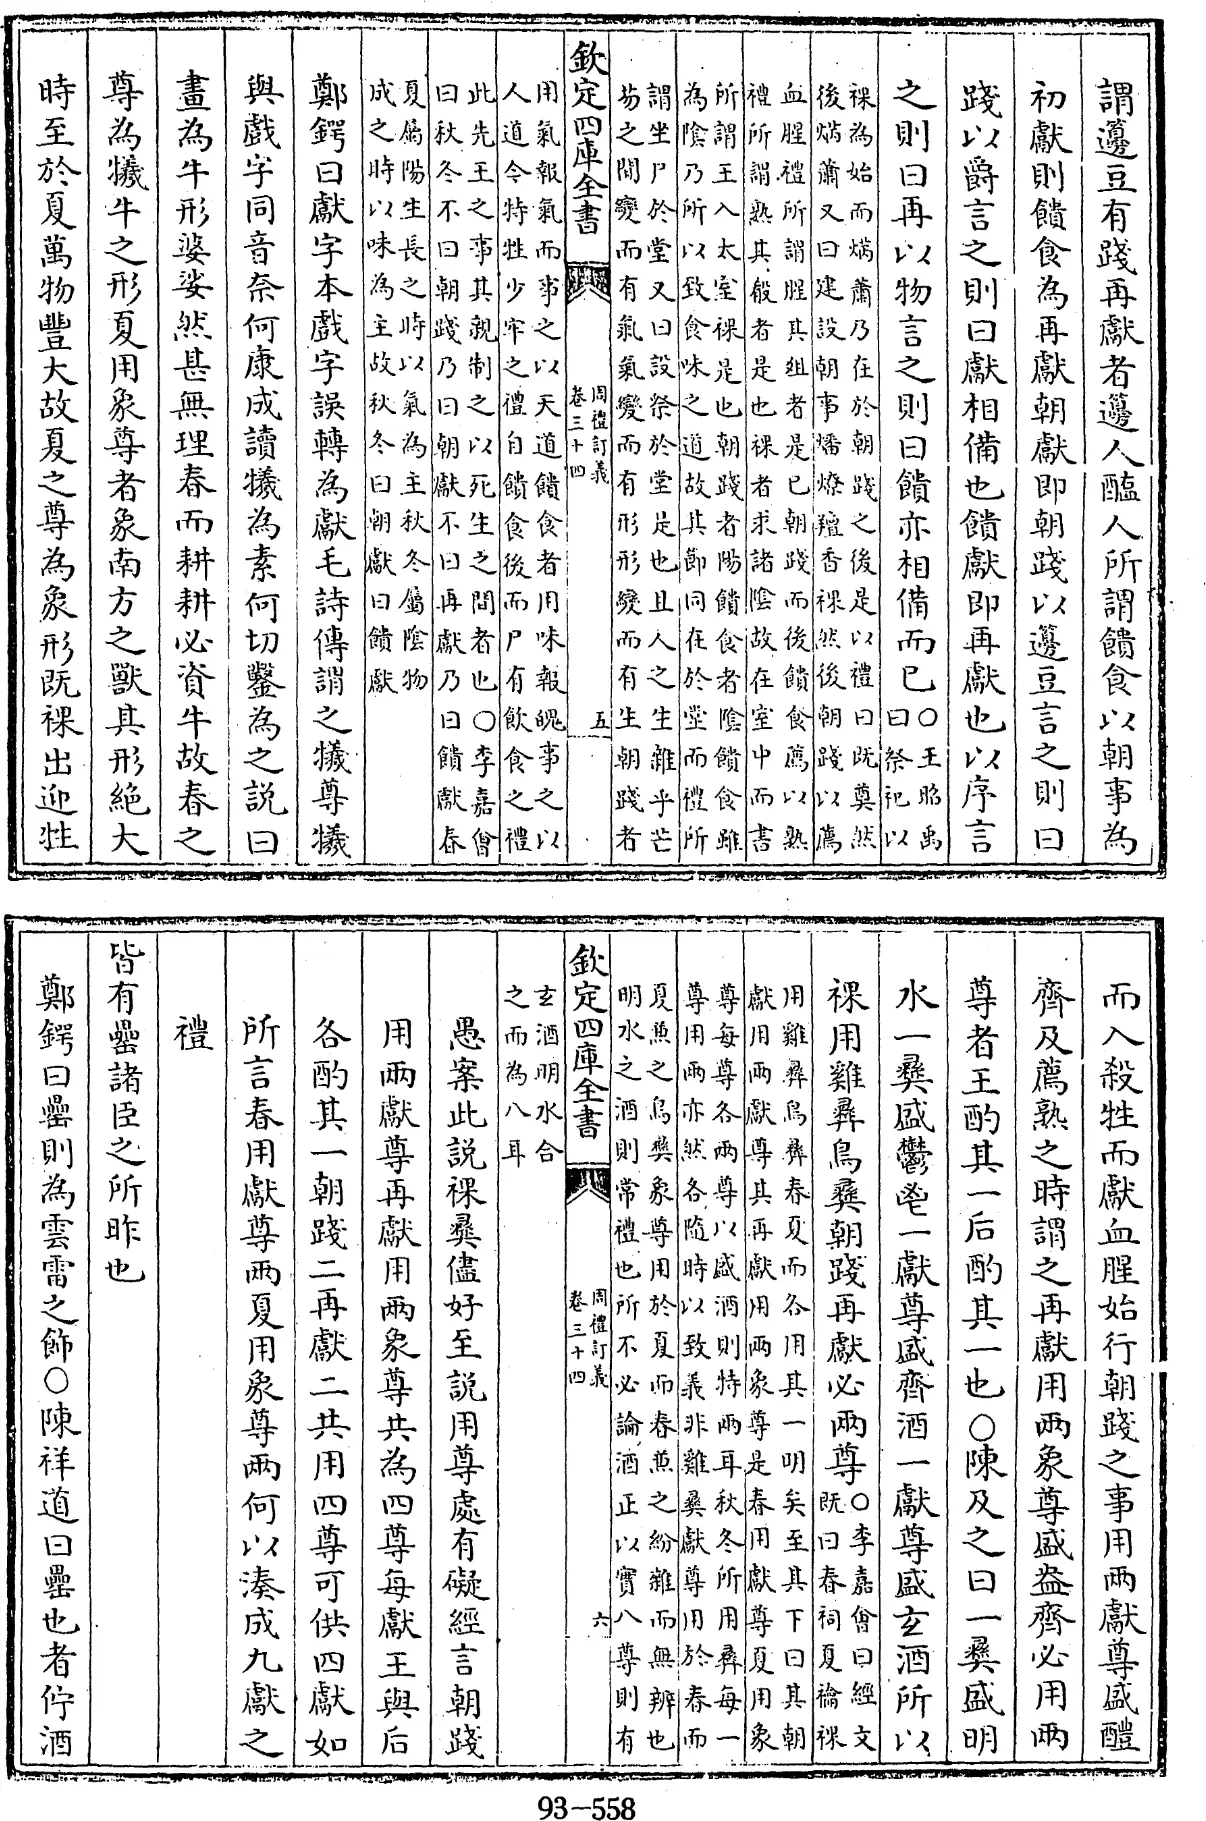 謂籩豆有踐再獻者籩人醢人所謂饋食以朝事為
初獻則饋食為再獻朝獻即朝踐以籩豆言之則曰
踐以爵言之則曰獻相備也饋獻即再獻也以序言
之則曰再以物言之則曰饋亦相備而已○王昭禹
曰祭祀以
祼為始而焫蕭乃在於朝踐之後是以禮曰既奠然
後焫蕭又曰建設朝事燔燎羶香祼然後朝踐以薦
血腥禮所謂腥其俎者是已朝踐而後饋食薦以熟
禮所謂熟其殽者是也祼者求諸陰故在室中而書
所謂王入太室祼是也朝踐者陽饋食者陰饋食雖
為陰乃所以致食味之道故其節同在於堂而禮所
謂坐尸於堂又曰設祭於堂是也且人之生雜乎芒
芴之間變而有氣氣變而有形形變而有生朝踐者
欽定四庫全書
周禮訂義
卷三十四
五
用氣報氣而事之以天道饋食者用味報魄事之以
人道令特牲少牢之禮自饋食後而尸有飲食之禮
此先王之事其親制之以死生之間者也○李嘉會
曰秋冬不曰朝踐乃曰朝獻不曰再獻乃曰饋獻春
夏屬陽生長之時以氣為主秋冬屬陰物
成之時以味為主故秋冬曰朝獻曰饋獻
鄭鍔曰獻字本戲字誤轉為獻毛詩傳謂之犧尊犧
與戲字同音奈何康成讀犧為素何切鑿為之說曰
畫為牛形婆娑然甚無理春而耕耕必資牛故春之
尊為犧牛之形夏用象尊者象南方之獸其形絶大
時至於夏萬物豐大故夏之尊為象形既祼出迎牲
而入殺牲而獻血腥始行朝踐之事用兩獻尊盛醴
齊及薦熟之時謂之再獻用兩象尊盛盎齊必用兩
尊者王酌其一后酌其一也○陳及之曰一彝盛明
水一彝盛鬱鬯一獻尊盛齊酒一獻尊盛玄酒所以
祼用雞彝鳥彝朝踐再獻必兩尊○李嘉會曰經文
既曰春祠夏禴祼
用雞彝鳥彝春夏而各用其一明矣至其下曰其朝
獻用兩獻尊其再獻用兩象尊是春用獻尊夏用象
尊每尊各兩尊以盛酒則特兩耳秋冬所用彝每一
尊用兩亦然各隨時以致義非雞彝獻尊用於春而
夏兼之鳥彝象尊用於夏而春兼之紛雜而無辨也
明水之酒則常禮也所不必論酒正以實八尊則有
欽定四庫全書
周禮訂義
卷三十四
六
玄酒明水合
之而為八耳
愚案此説祼彝儘好至説用尊處有礙經言朝踐
用兩獻尊再獻用兩象尊共為四尊每獻王與后
各酌其一朝踐二再獻二共用四尊可供四獻如
所言春用獻尊兩夏用象尊兩何以湊成九獻之
禮
皆有罍諸臣之所昨也
鄭鍔曰罍則為雲雷之飾○陳祥道曰罍也者佇酒
93-558